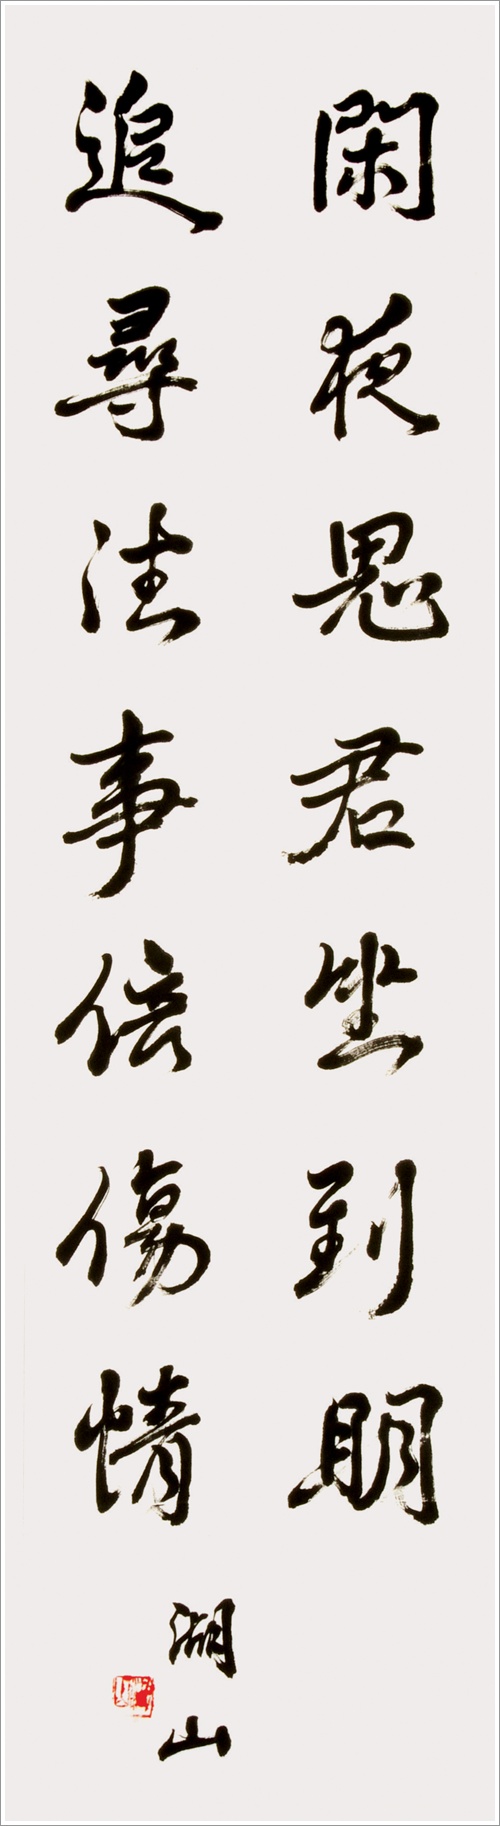 閑夜思君坐到明
追尋往事倍傷情
湖山